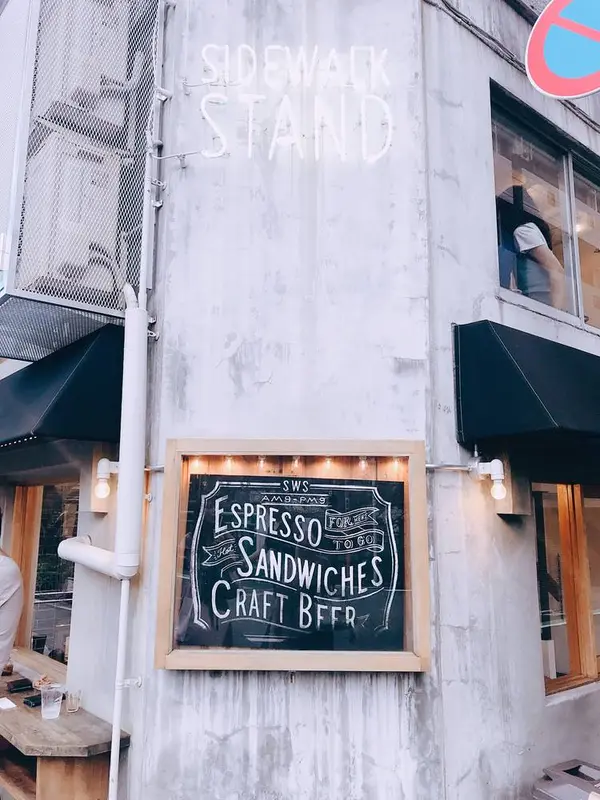 SIDEWALK
STAND
SWS
AM9-PM9
ESPRESSO
FOR HERE
TO GO
Hot
SANDWICHES
CRAFT BEER